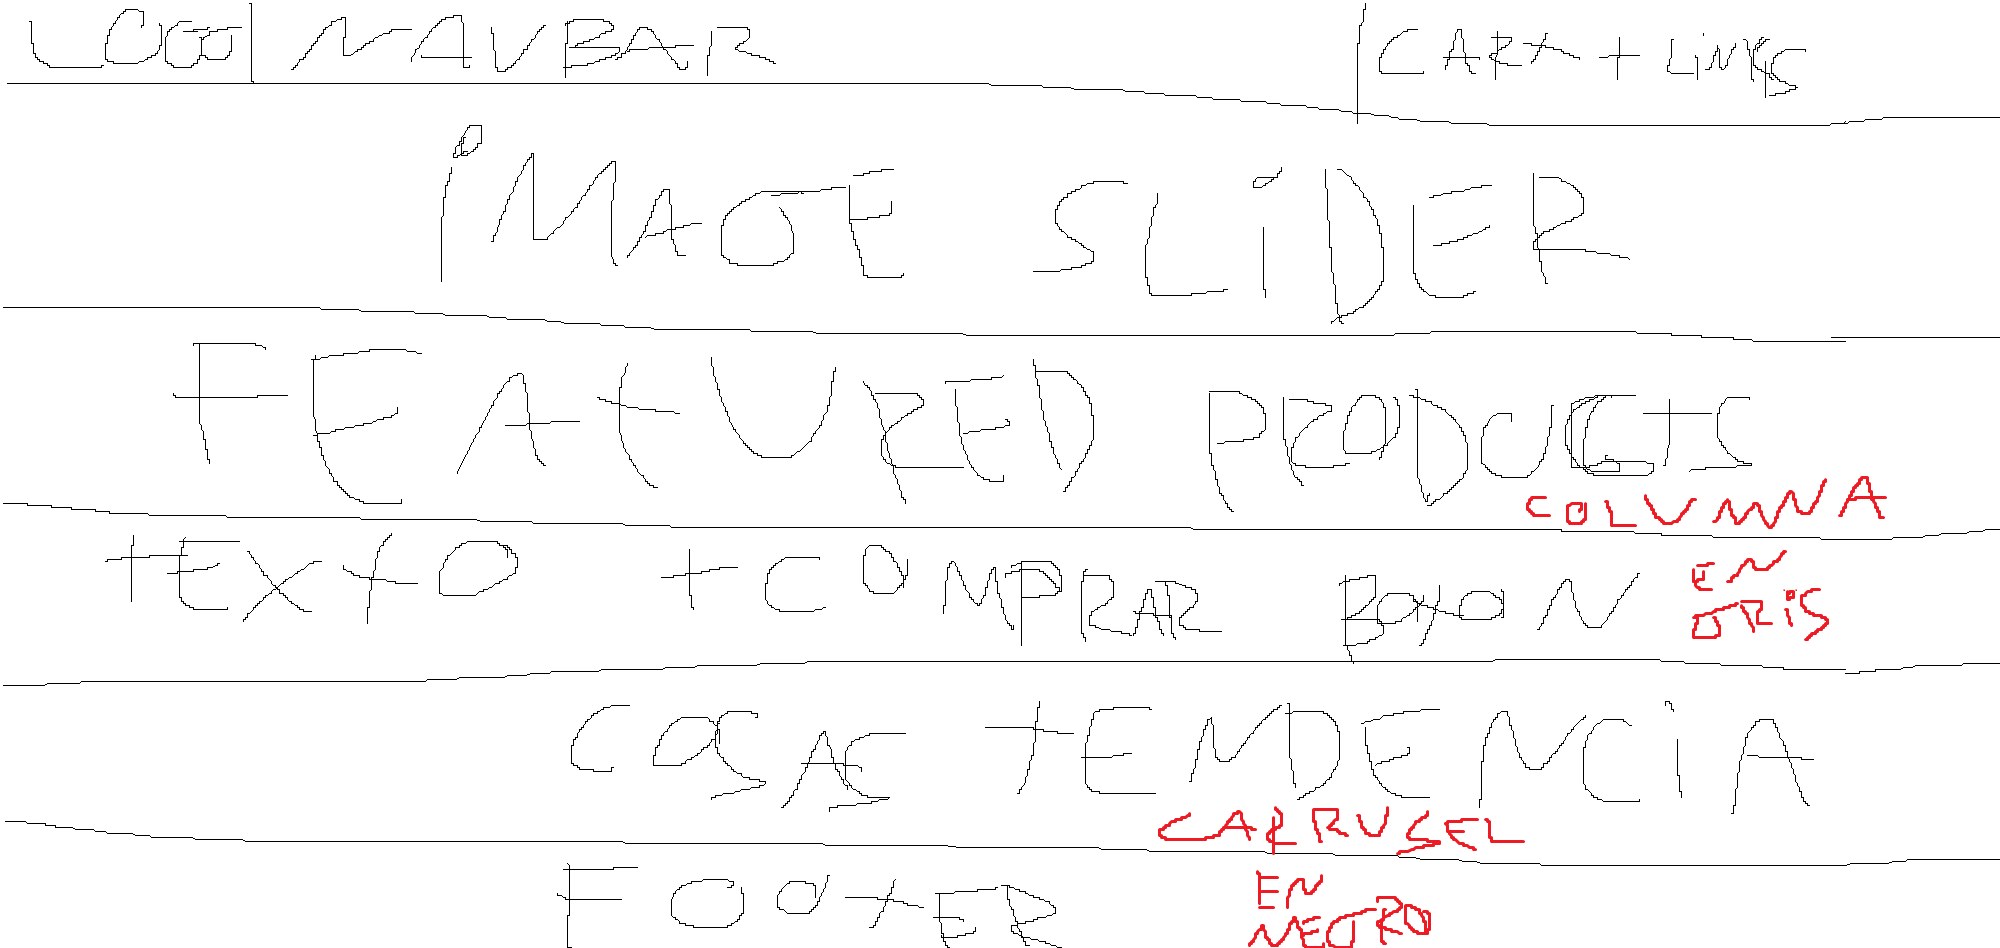 LOGO NAVBAR CART + LINKS
IMAGE SLIDER
FEATURED PRODUCTS
COLUMNA
TEXTO + COMPRAR BOTON EN GRIS
COSAS TENDENCIA
CARRUSEL
FOOTER EN NEGRO